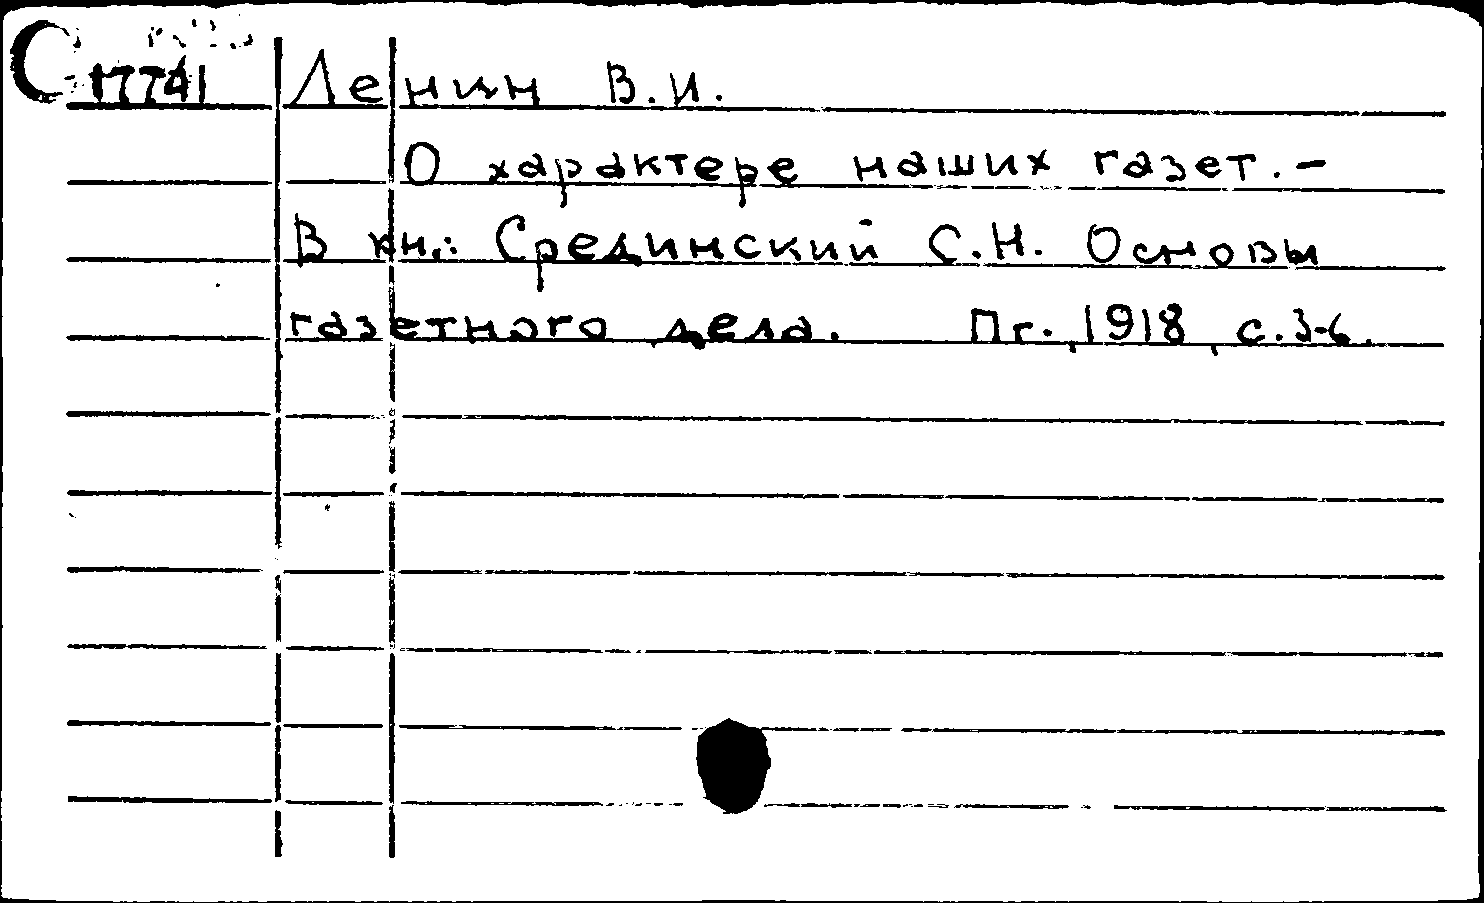 С 17741 Ленин В.И.
О характере наших газет. -
В кн.: Срединский С.Н. Основы
газетного дела. Пг., 1918, с. 3-6.